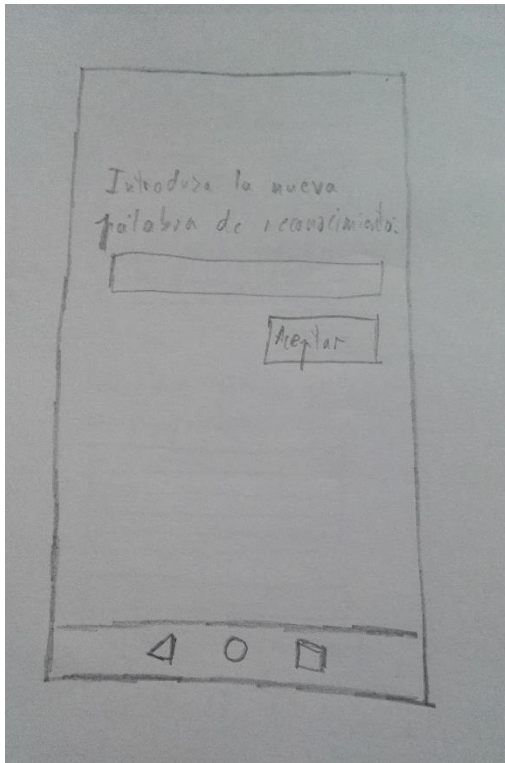 Introduzca la nueva
palabra de reconocimiento:
Aceptar